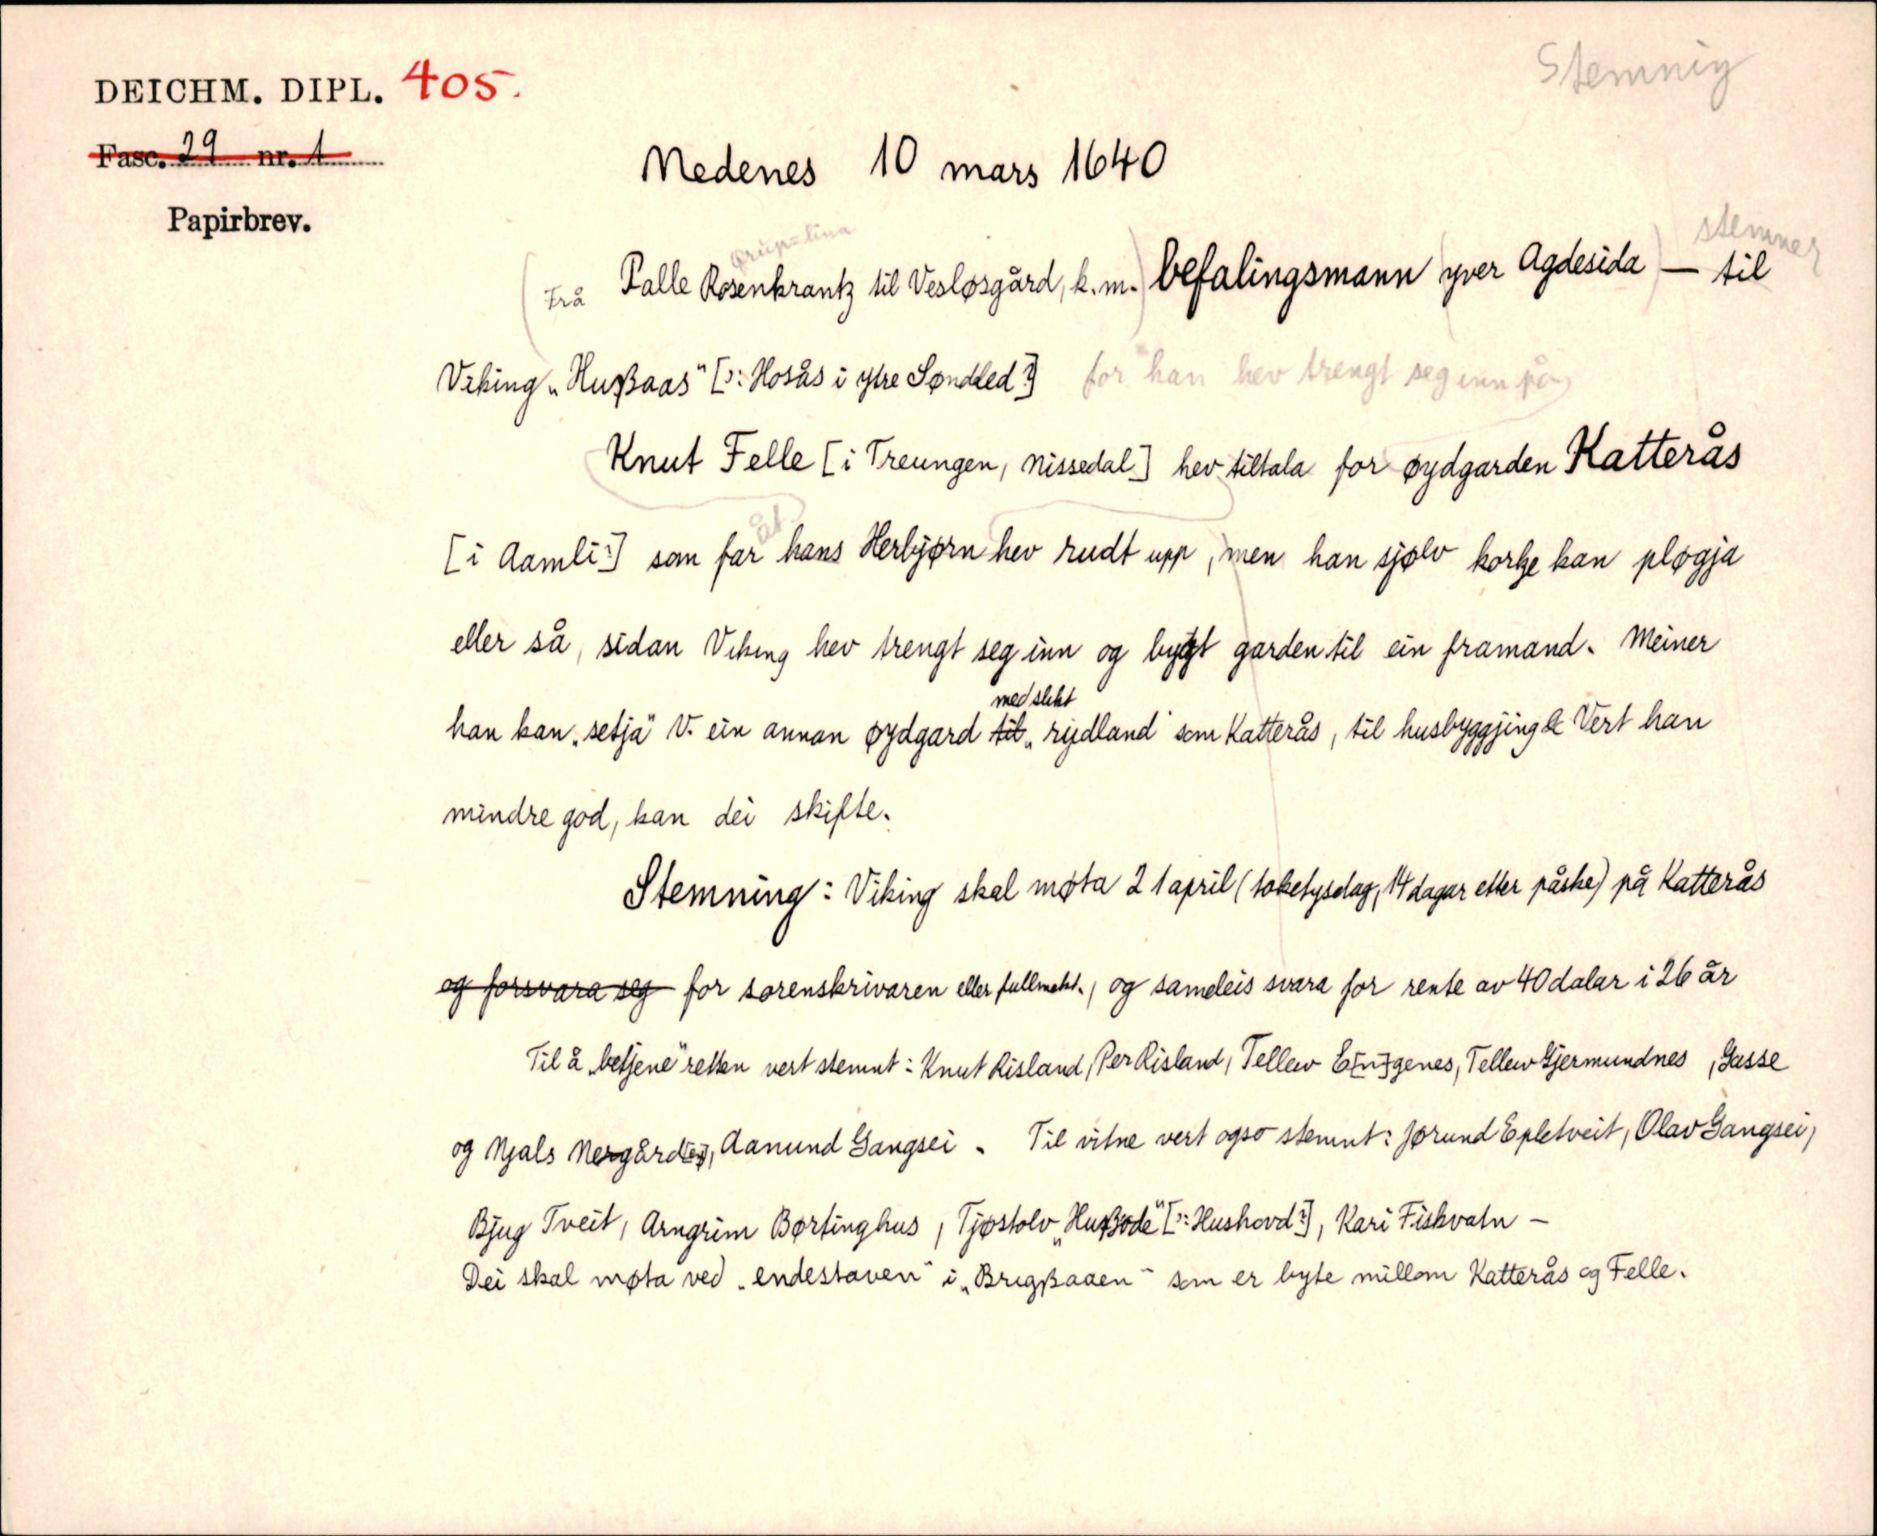 DEICHM. DIPL. 405.
Stemning
Fasc. 29 nr. 1
Medenes 10 mars 1640
Papirbrev.
stemner
(Frå Palle Rosenkrantz til Vesløsgård, k.m.) befalingsmann (yver Agdesida) — til
Viking „Hußaas" [ɔ: Hosås i ytre Søndeled?] for han hev trengt seg inn på
Knut Felle [i Treungen, Nissedal] hev tiltala for øydgarden Katterås
åt
[i Aamli?] som far hans Herbjørn hev rudt upp, men han sjølv korkje kan pløgja
eller så, sidan Viking hev trengt seg inn og bygt garden til ein framand. Meiner
med slikt
han kan „setja" V. ein annan øydgard til „rydland" som Katterås, til husbyggjing & Vert han
mindre god, kan dei skifte.
Stemning: Viking skal møta 21 april (toketysdag, 14 dagar etter påske) på Katterås
og forsvara seg for sorenskrivaren eller fullmekt., og sameleis svara for rente av 40 dalar i 26 år
Til å „betjene" retten vert stemnt: Knut Risland, Per Risland, Tellev E[n]genes, Tellev Gjermundnes, Gasse
og Njals Nergård[ei], Aanund Gangsei. Til vitne vert ogso stemnt: Jørund Epletveit, Olav Gangsei,
Bjug Tveit, Arngrim Børtinghus, Tjøstolv „Hußode" [ɔ: Hushovd?], Kari Fiskvatn –
Dei skal møta ved „endestaven" i „Brigßaaen" som er byte millom Katterås og Felle.